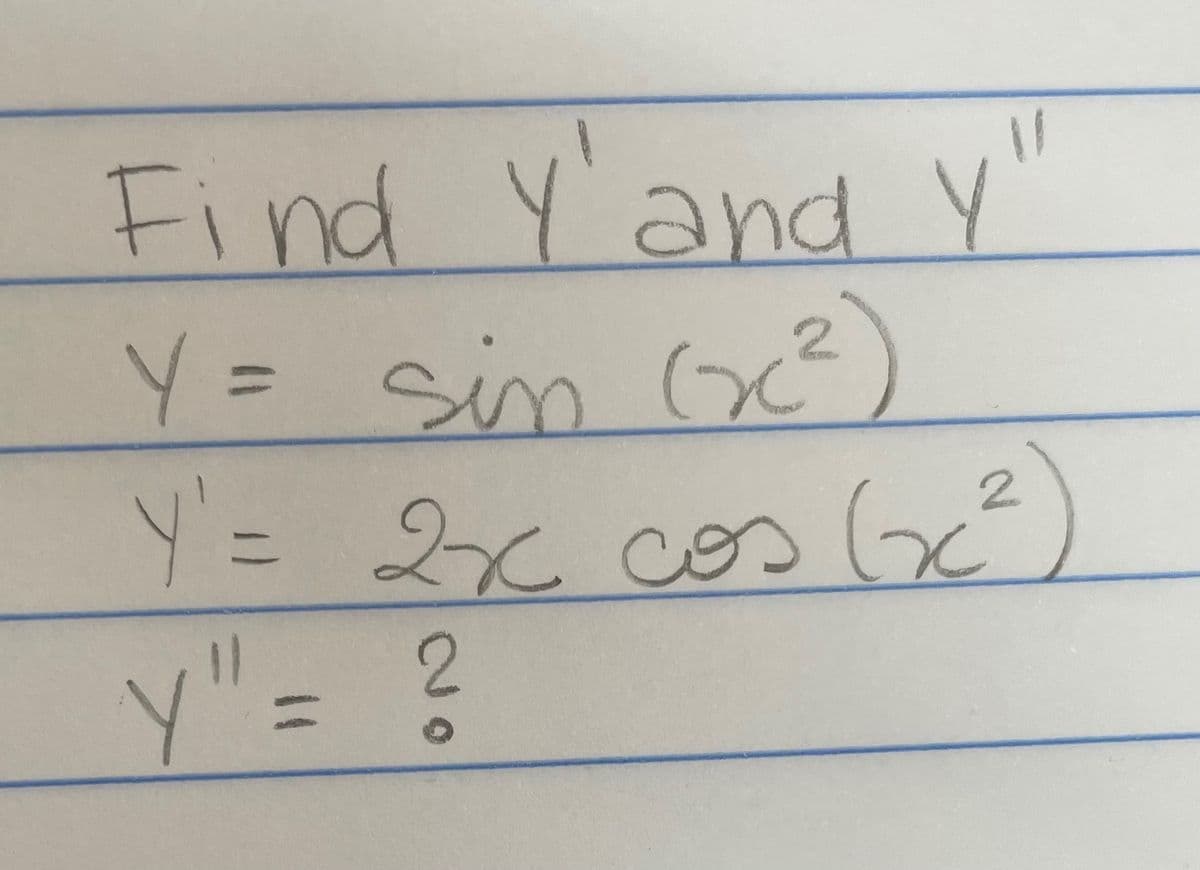 Find Y' and Y"
Y = sin (x²)
Y' = 2x cos (x²)
Y" = ?